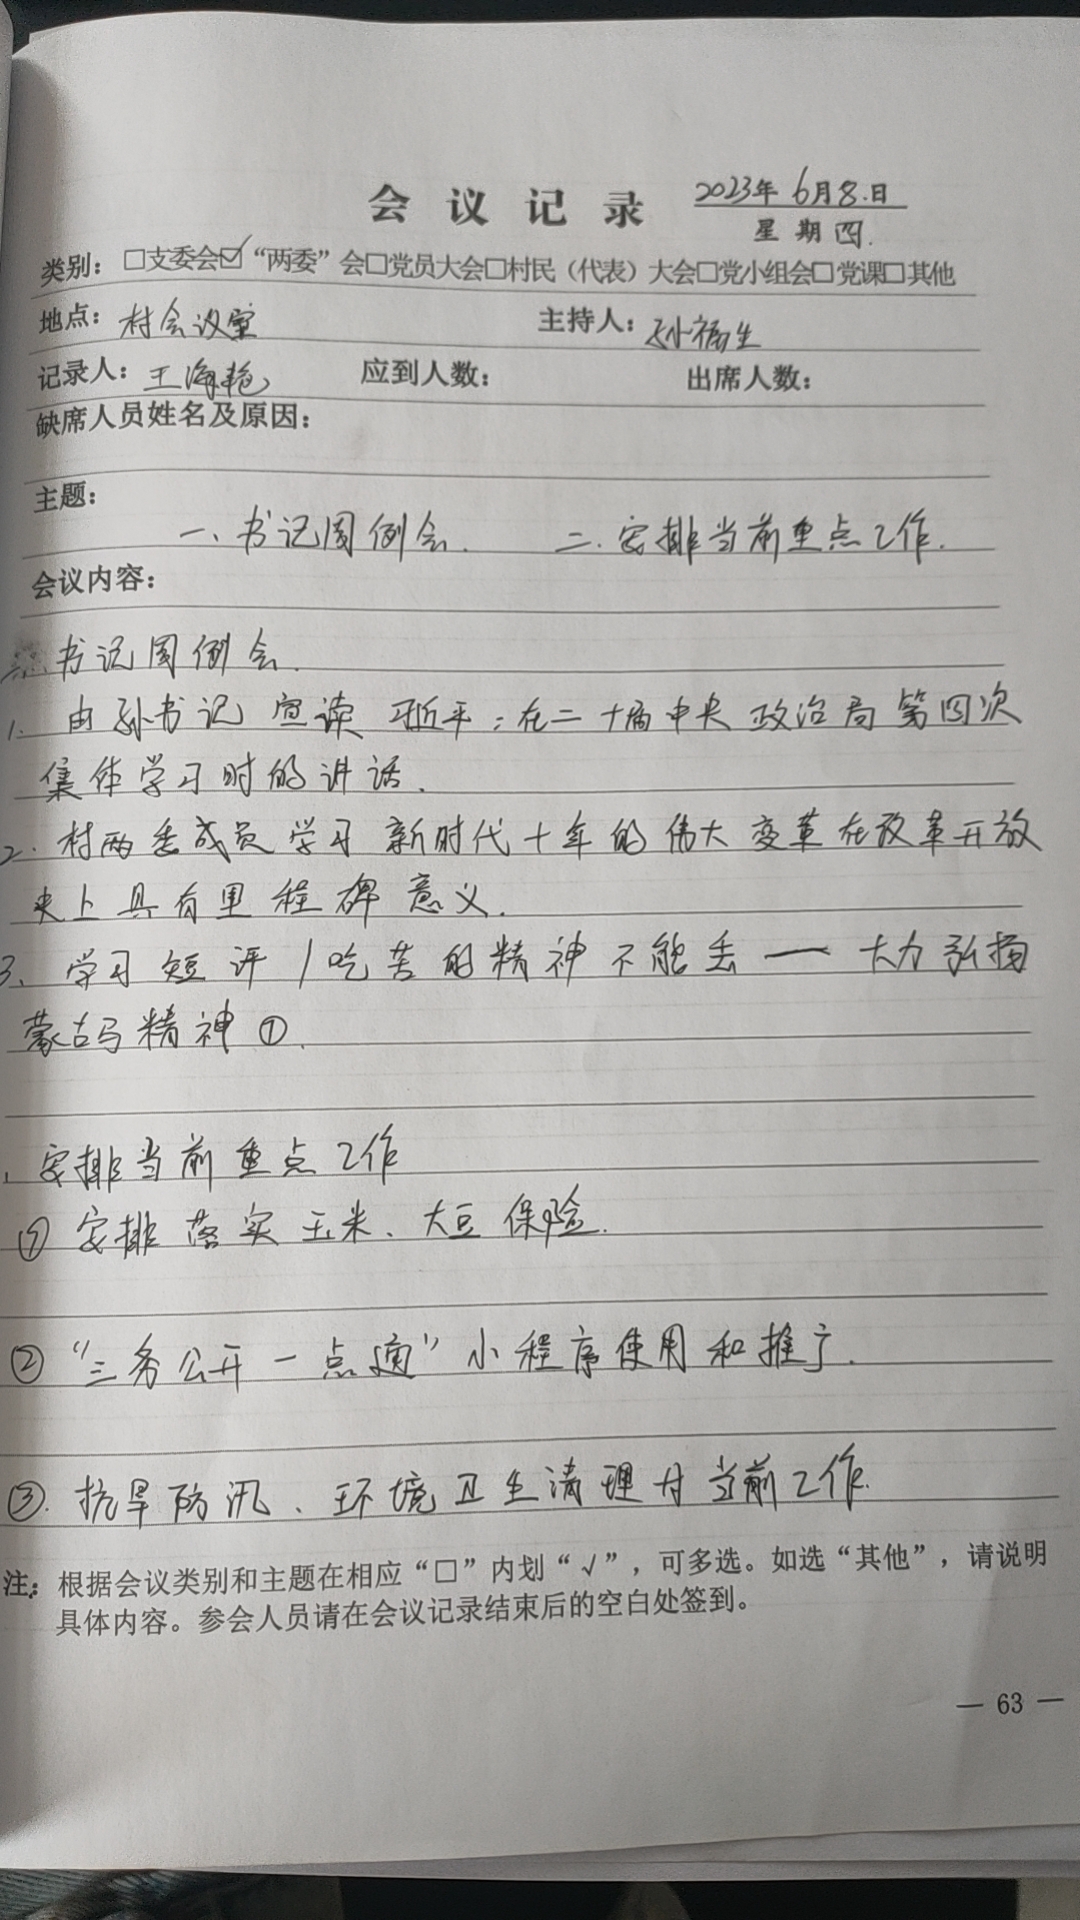 会议记录 2023年6月8.日
星期四.
类别：□支委会☑“两委”会□党员大会□村民（代表）大会□党小组会□党课□其他
地点：村会议室 主持人：孙福生
记录人：王海艳 应到人数： 出席人数：
缺席人员姓名及原因：
主题：
一、书记周例会. 二.安排当前重点工作.
会议内容：
书记周例会.
1. 由孙书记宣读 习近平:在二十届中央政治局第四次
集体学习时的讲话.
2. 村两委成员学习新时代十年的伟大变革在改革开放
史上具有里程碑意义.
3、学习短评/吃苦的精神不能丢 — 大力弘扬
蒙古马精神①.
、安排当前重点工作
① 安排落实玉米、大豆保险.
② “三务公开一点通”小程序使用和推广.
③. 抗旱防汛、环境卫生清理为当前工作.
注：根据会议类别和主题在相应“□”内划“√”，可多选。如选“其他”，请说明
具体内容。参会人员请在会议记录结束后的空白处签到。
— 63 —